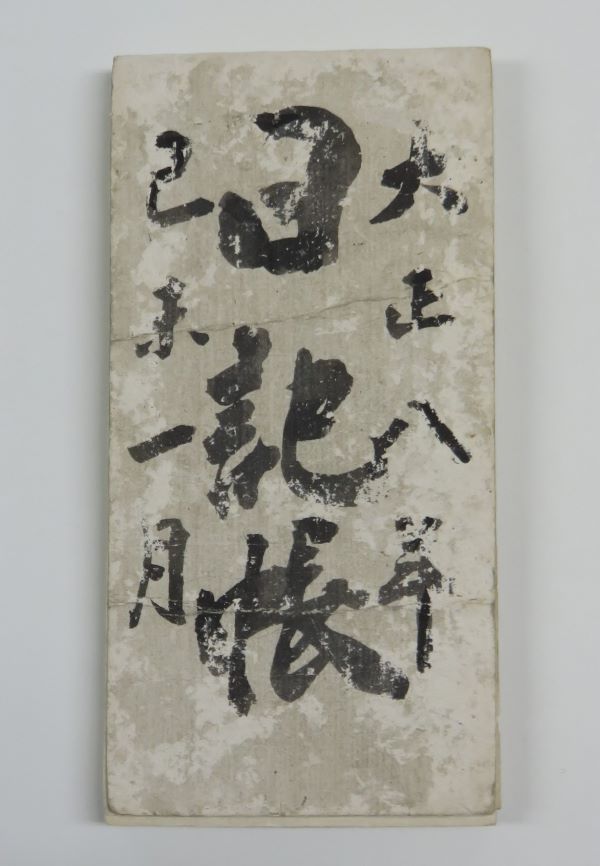 大正八年
日記帳
己未一月